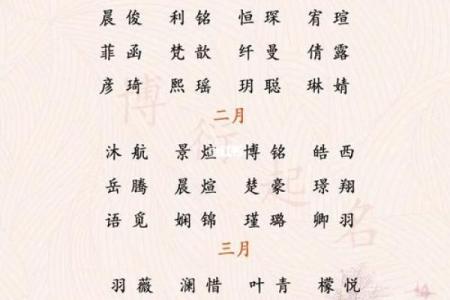 晨俊 利铭 恒琛 宥瑄
菲函 梵歆 纤曼 倩露
彦琦 熙瑶 玥聪 琳婧
二月
沐航 景煊 博铭 皓西
岳腾 晨煊 楚豪 璟翔
语觅 娴锦 瑾璐 卿羽
三月
羽薇 澜惜 叶青 檬悦
博衍起名